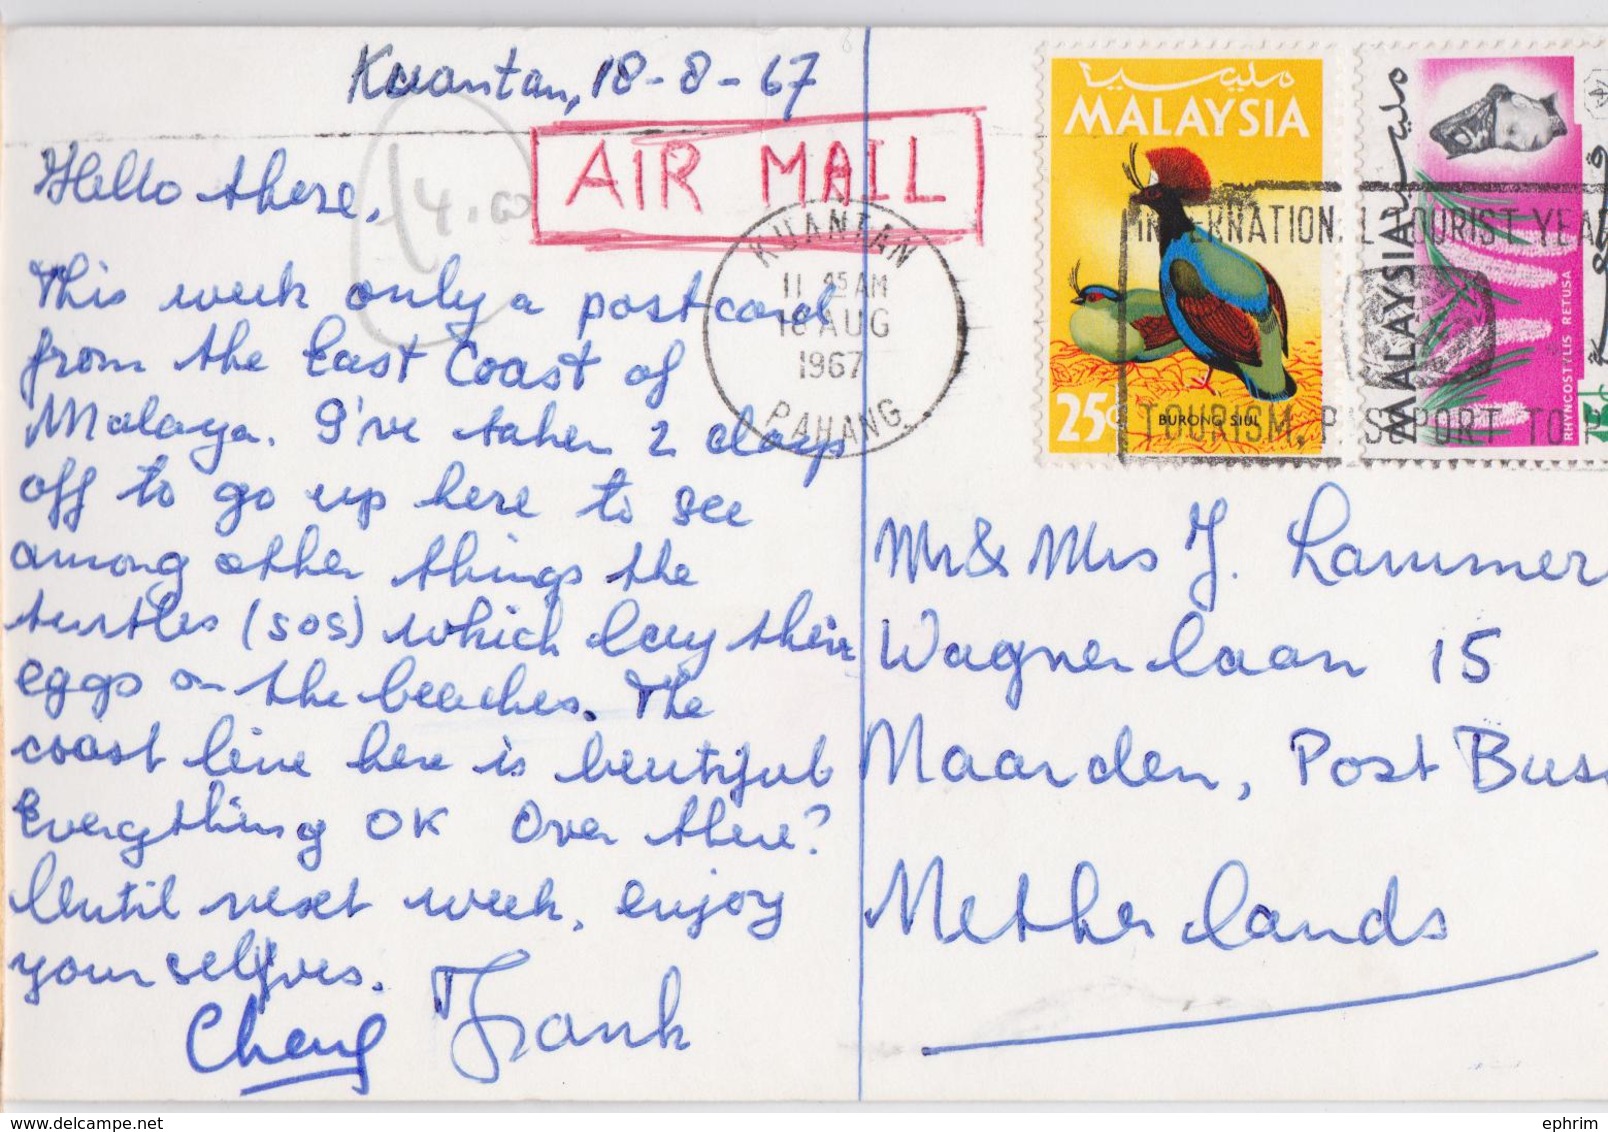 Kuantan, 18-8-67
AIR MAIL
Hello there,
14.00
This week only a postcard
from the East Coast of
Malaya. I've taken 2 days
off to go up here to see
among other things the
turtles (SOS) which lay their
eggs on the beaches. The
coast line here is beutiful
Everything OK over there?
Until next week, enjoy
yourselfves.
Frank
KUANTAN
11 45 AM
18 AUG
1967
PAHANG.
مليسيا
MALAYSIA
25c
BURONG SIUL
مليسيا
MALAYSIA
RHYNCOSTYLIS RETUSA
INTERNATIONAL TOURIST YEA
TOURISM, PASSPORT TO P
Mr & Mrs J. Lammer
Wagnerlaan 15
Naarden, Post Bus
Netherlands
delcampe.net
ephrim